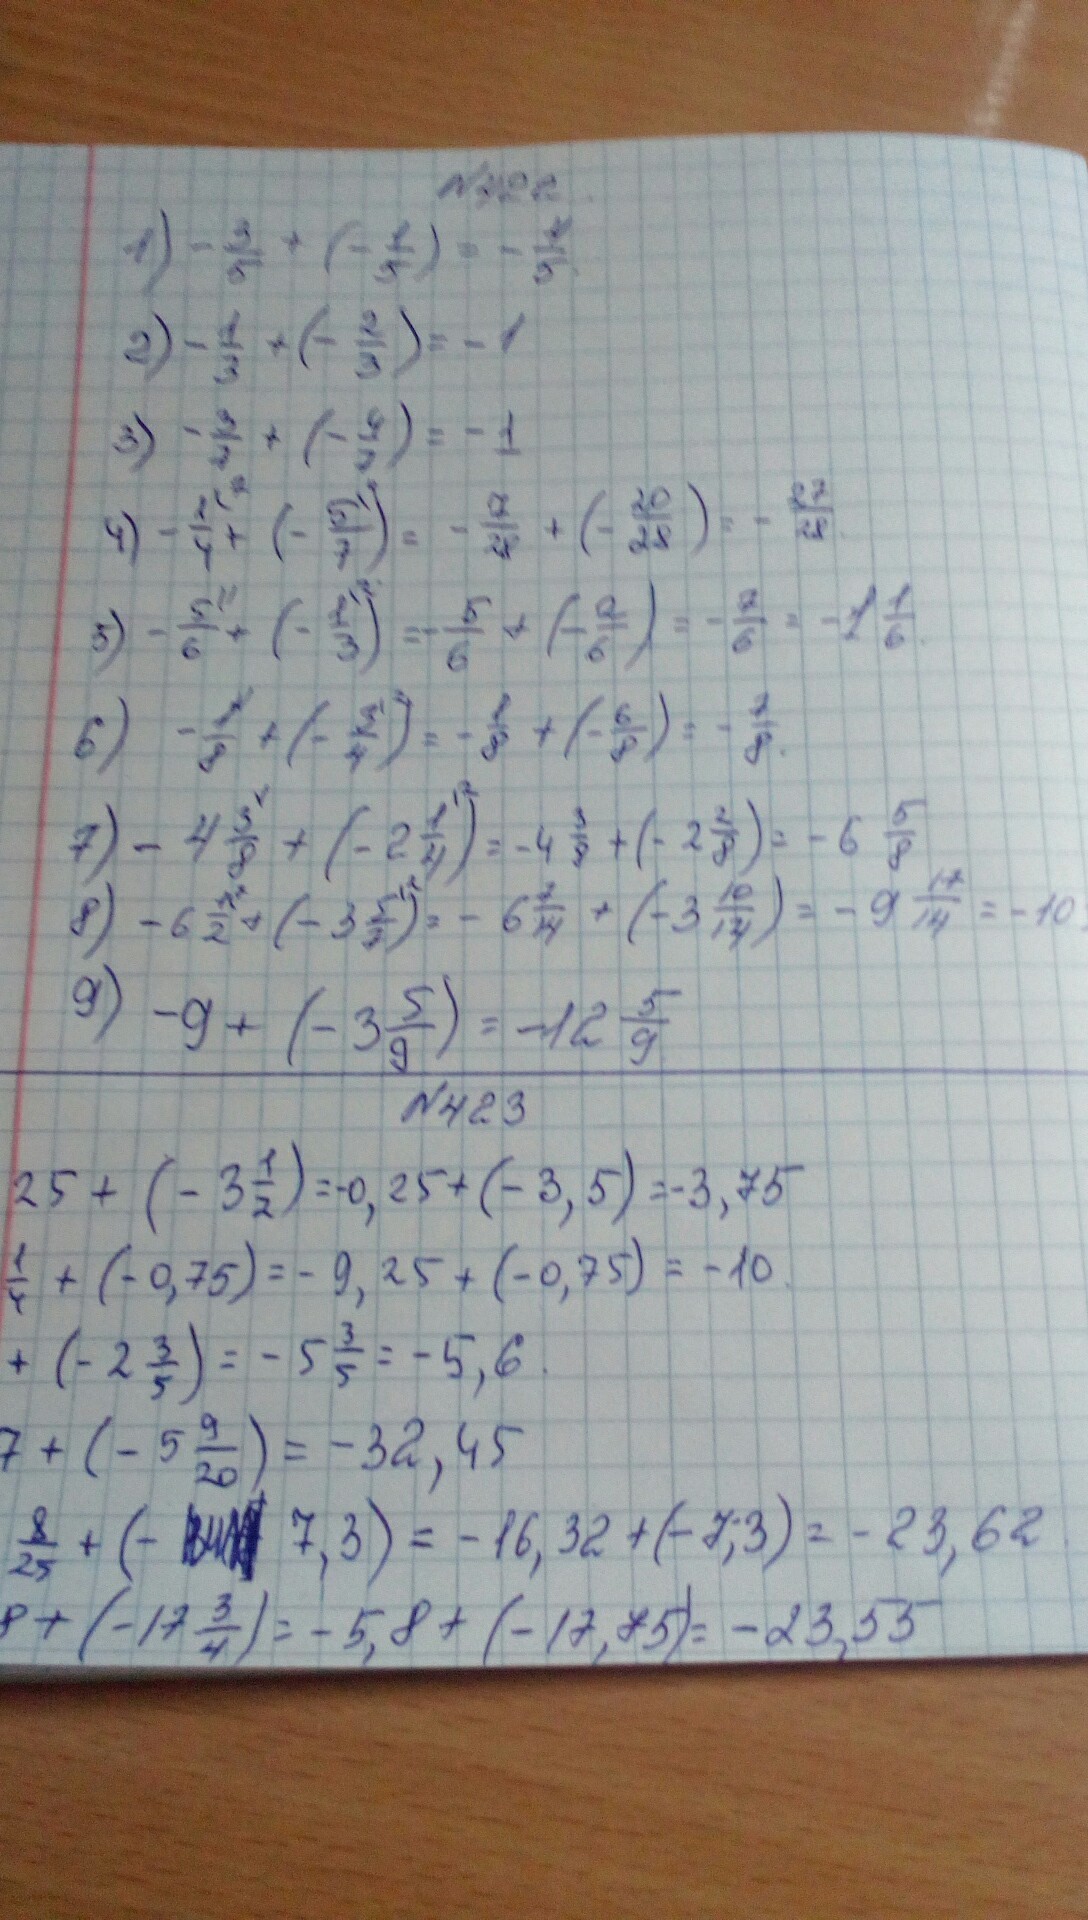 N422.
1) - 3/5 + (- 1/5) = - 4/5.
2) - 1/3 + (- 2/3) = - 1
3) - 3/7 + (- 4/7) = - 1
4) - 1/4 + (- 5/7) = - 7/28 + (- 20/28) = - 27/28.
5) - 5/6 + (- 1/3) = - 5/6 + (- 2/6) = - 7/6 = - 1 1/6.
6) - 1/8 + (- 3/4) = - 1/8 + (- 6/8) = - 7/8.
7) - 4 3/8 + (- 2 1/4) = - 4 3/8 + (- 2 2/8) = - 6 5/8
8) - 6 1/2 + (- 3 5/7) = - 6 7/14 + (- 3 10/14) = - 9 17/14 = - 10
9) - 9 + (- 3 5/9) = - 12 5/9
N423
25 + (- 3 1/2) = -0,25 + (- 3,5) = -3,75
1/4 + (-0,75) = - 9,25 + (-0,75) = -10.
+ (- 2 3/5) = - 5 3/5 = - 5,6.
7 + (- 5 9/20) = -32,45
8/25 + (- 7,3) = - 16,32 + (-7,3) = - 23,62
8 + (-17 3/4) = - 5,8 + (-17,75) = -23,55